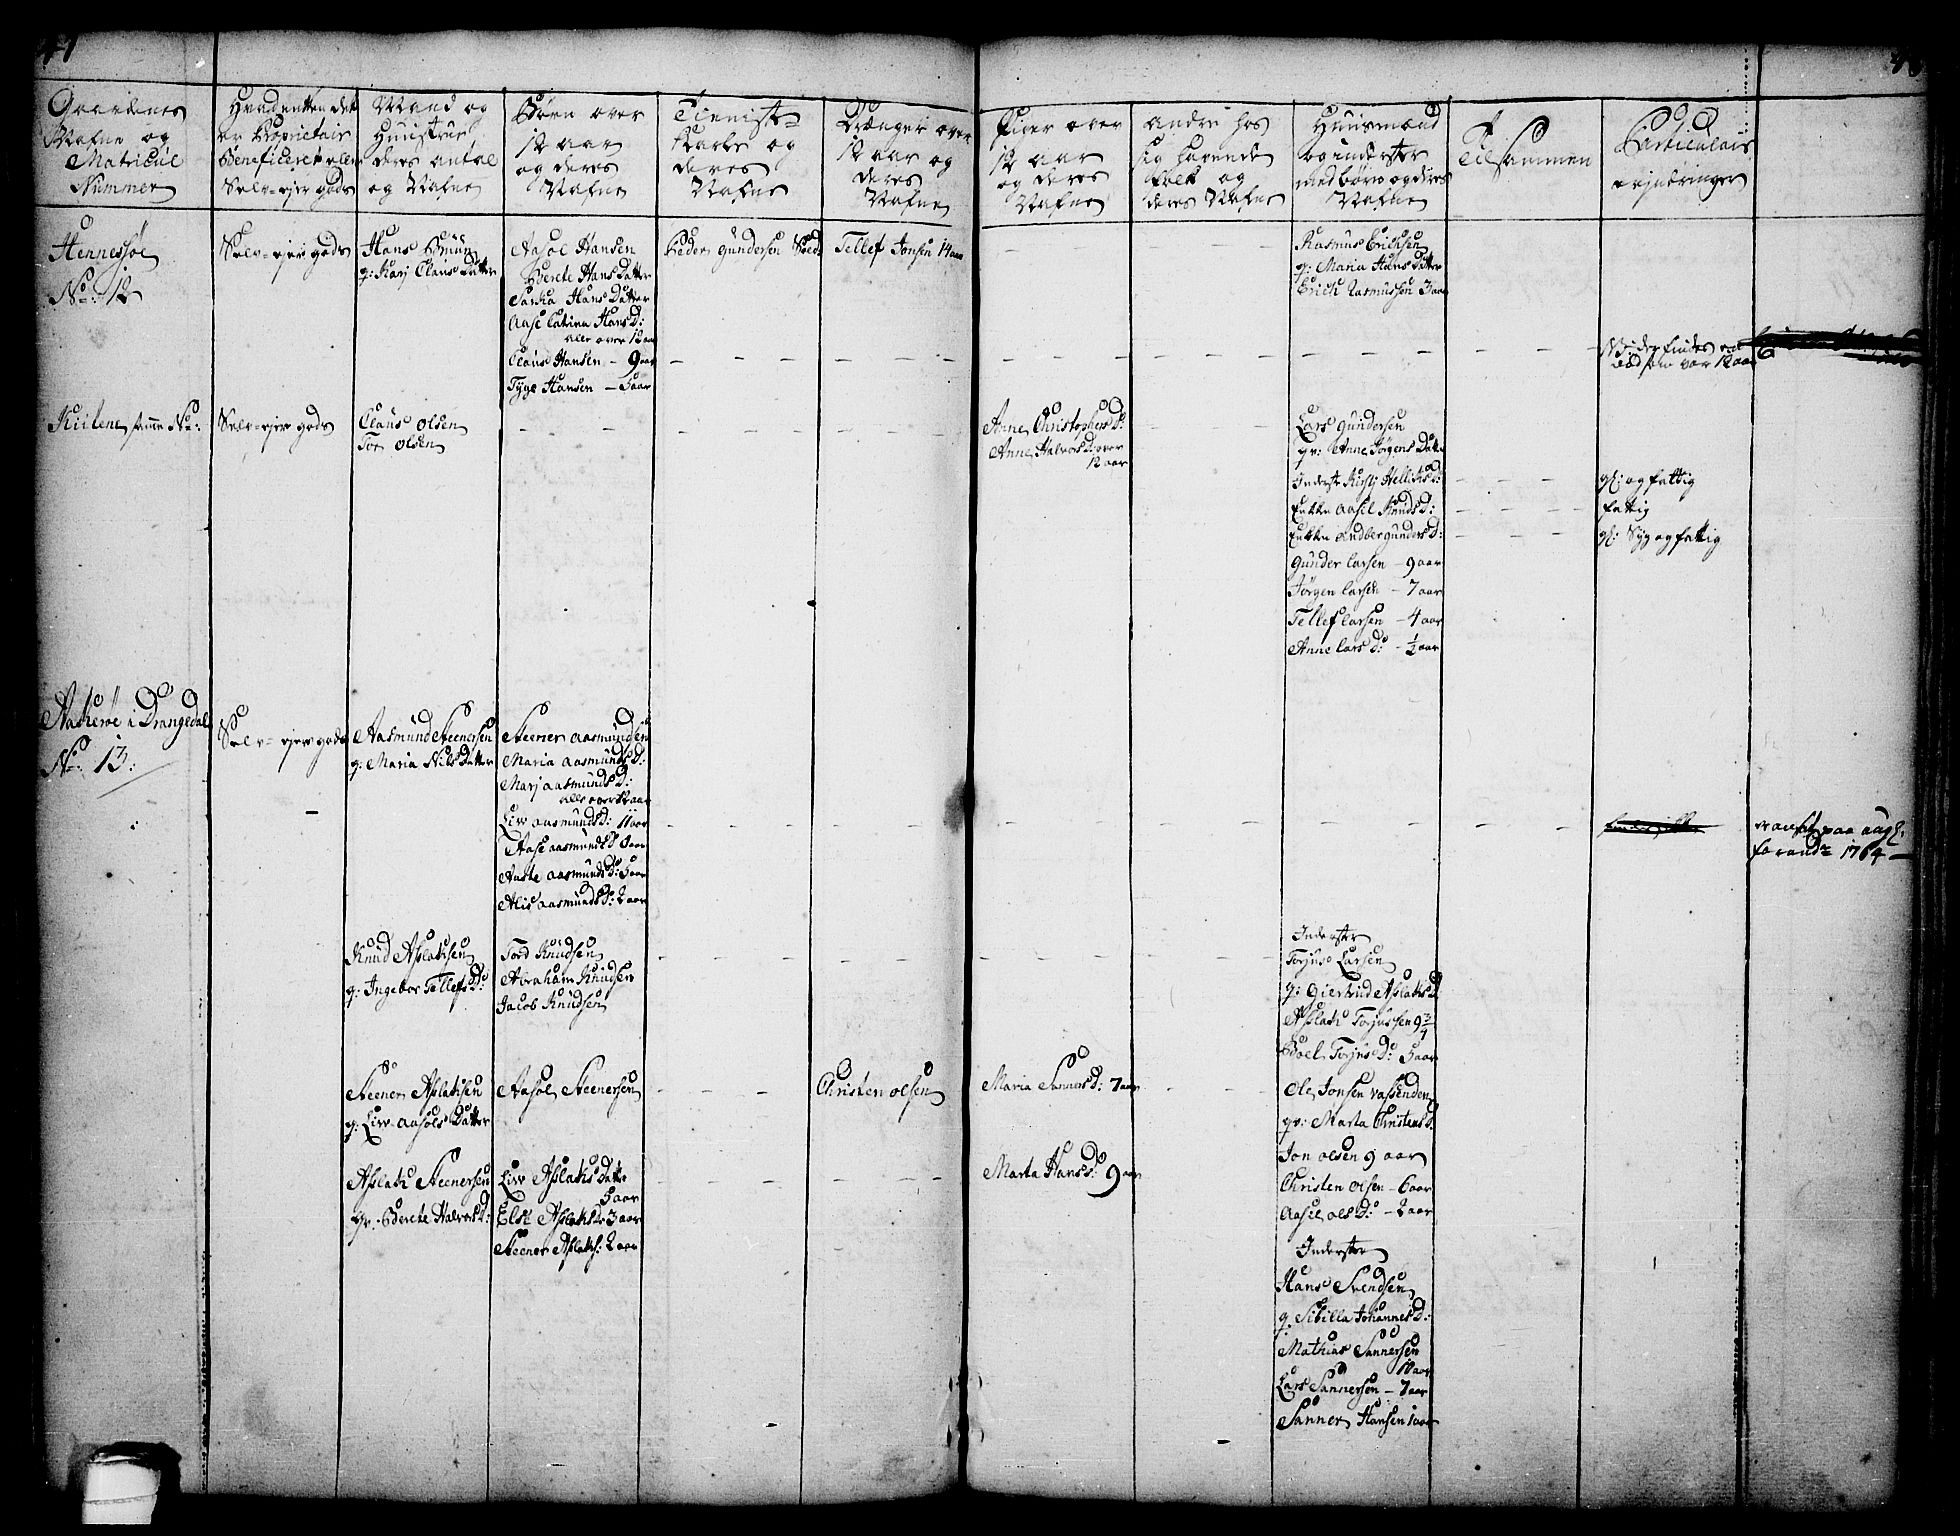 47
Gaardenes
Nafne og
Matricul
Nummer
Hvadenten det
er Proprietair
Beneficeret eller
Selv-ejer gods
Mand og
Huustrue
deres antal
og Nafne
Børn over
12 aar
og deres
Nafne
Tieniste
Karle og
deres
Nafne
Drænger over
12 aar og
deres
Nafne
Piger over
12 aar
og deres
Nafne
andre hos
sig havende
folk og
deres Nafne
Huusmænd
og inderster
med børn og deres
Nafne
Tilsammen
Particulair
erindringer
Hennesøe
No: 12
Selv-ejer gods
Hans
g: Karj Claus Datter
Aasol Hansen
Berete Hans Datter
Hans Datter
Aase Catrina Hans D:
alle over 12 aar
Claus Hansen - 9 aar
Tyge Hansen - 5 aar
Peder Gundersen
Tellef Jonsen 14 aar
Rasmus Erichsen
g: Maria Hans Datter
Erich Rasmussen 3 aar
NB: der findes
12 aar
Kiilene samme No:
Selv-ejer gods
Claus Olsen
Tor Olsen
Anne Christophers D:
Anne Halvors D: over
12 aar
Lars Gundersen
gv: Anne Jørgens Datter
Inderst Kirstj Helliks D:
Enke Aasil Knuds D:
Enke Gunders D:
Gunder Larsen - 9 aar
Jørgen Larsen - 7 aar
Tellef Larsen - 4 aar
Anne Lars D: - ½ aar
gl: og fattig
fattig
gl: Syg og fattig
i Drangedal
No: 13:
Selv-ejer gods
Aasmund Steenersen
g: Maria Nils Datter
Steener Aasmundsen
Maria Aasmunds D:
Marj Aasmunds D:
alle over 12 aar
Liv Aasmunds D: 11 aar
Aase Aasmunds D
Aaste Aasmunds D: 5 aar
Alis Aasmunds D: 2 aar
paa
1764
Knud Aslaksen
g: Ingebor Tellefs D:
Tord Knudsen
Abraham Knudsen
Jacob Knudsen
Inderster
Torjus Larsen
g: Giertrud Aslaks D
Aslak Torjussen 9¾
Boel Torjus D: 5 aar
Steener Aslaksen
g: Liv Aasols Datter
Aasol Steenersen
Christen Olsen
Maria Sanners D: 7 aar
Ole Jonsen Vassenden
gv: Marta Christens D:
Jon Olsen 9 aar
Christen Olsen - 6 aar
Aasil Ols D: - 2 aar
Aslak Steenersen
gv: Berete Halvors D:
Liv Aslaks Datter
5 aar
Else Aslaks D: 3 aar
Steener Aslaks: 2 aar
Marta Hans D: 9 aar
Inderster
Hans Svendsen
g: Sibilla Johannes D:
Mathias Sannersen
10 aar
Lars Sannersen - 7 aar
Sanner Hansen 1 aar